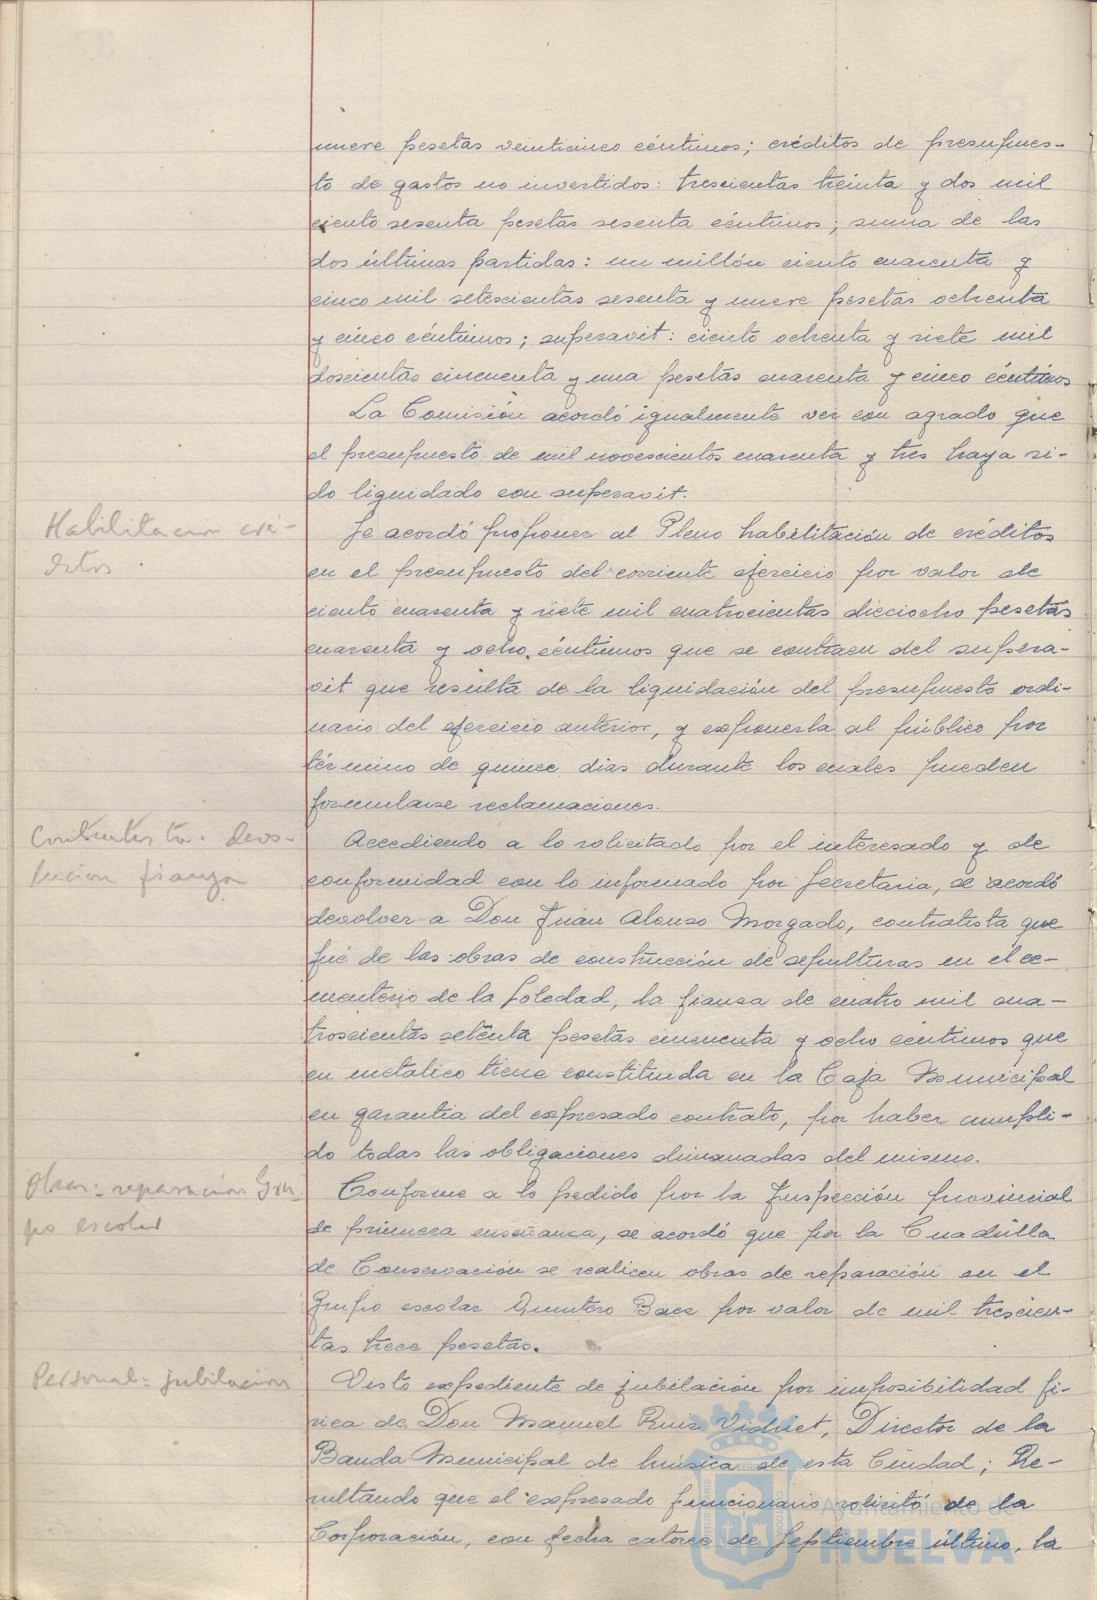 nueve pesetas veinticinco céntimos; créditos de presupues-
to de gastos no invertidos: trescientas treinta y dos mil
ciento sesenta pesetas sesenta céntimos; suma de las
dos últimas partidas: un millón ciento cuarenta y
cinco mil setescientas sesenta y nueve pesetas ochenta
y cinco céntimos; superavit: ciento ochenta y siete mil
doscientas cincuenta y una pesetas cuarenta y cinco céntimos
La Comisión acordó igualmente ver con agrado que
el presupuesto de mil novescientos cuarenta y tres haya si-
do liquidado con superavit.
Habilitacion cré-
ditos
Se acordó proponer al Pleno habilitación de créditos
en el presupuesto del corriente ejercicio por valor de
ciento cuarenta y siete mil cuatrocientas dieciocho pesetas
cuarenta y ocho céntimos que se contraen del supera-
vit que resulta de la liquidación del presupuesto ordi-
nario del ejercicio anterior, y exponerla al público por
término de quince dias durante los cuales pueden
formularse reclamaciones.
Contratista. devo-
lucion fianza
Accediendo a lo solicitado por el interesado y de
conformidad con lo informado por Secretaria, se acordó
devolver a Don Juan Alonso Morgado, contratista que
fué de las obras de construcción de sepulturas en el ce-
menterio de la Soledad, la fianza de cuatro mil cua-
troscientas setenta pesetas cincuenta y ocho centimos que
en metalico tiene constituida en la Caja Municipal
en garantia del expresado contrato, por haber cumpli-
do todas las obligaciones dimanadas del mismo.
Obras: reparacion Gru-
po escolar
Conforme a lo pedido por la Inspección provincial
de primera enseñanza, se acordó que por la Cuadrilla
de Conservación se realicen obras de reparación en el
Grupo escolar Quintero Baez por valor de mil trescien-
tas trece pesetas.
Personal: jubilacion
Visto expediente de jubilación por imposibilidad fi-
sica de Don Manuel Ruiz Vidriet, Director de la
Banda Municipal de música de esta Ciudad; Re-
sultando que el expresado funcionario solicitó de la
Corporación, con fecha catorce de Septiembre último, la
Ayuntamiento de
HUELVA